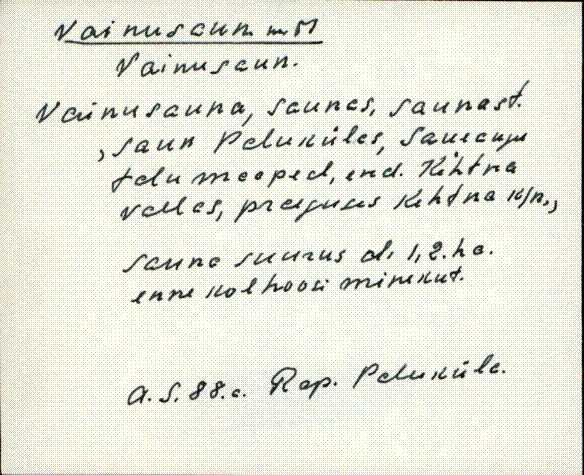 Vainusaun n M
Vainusaun.
Vainusauna, saunas, saunast.
, saun Paluküles, Saueauga
talu maaped, end. Kehtna
vallas, praeguses Kehtna k/n.,
sauna suurus oli 1,2. ha.
enne kolhoosi minekut.
A. S. 88. a. Rap. Paluküla.